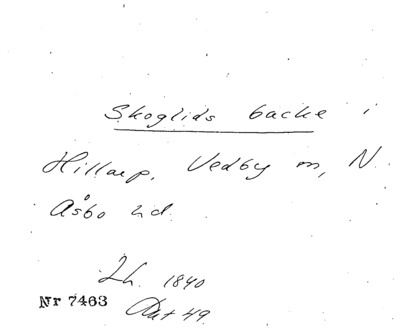 Skoglids backe i
Hillarp, Vedby sn, N.
Åsbo hd.
Lh. 1840
Nr 7463
Akt 49.